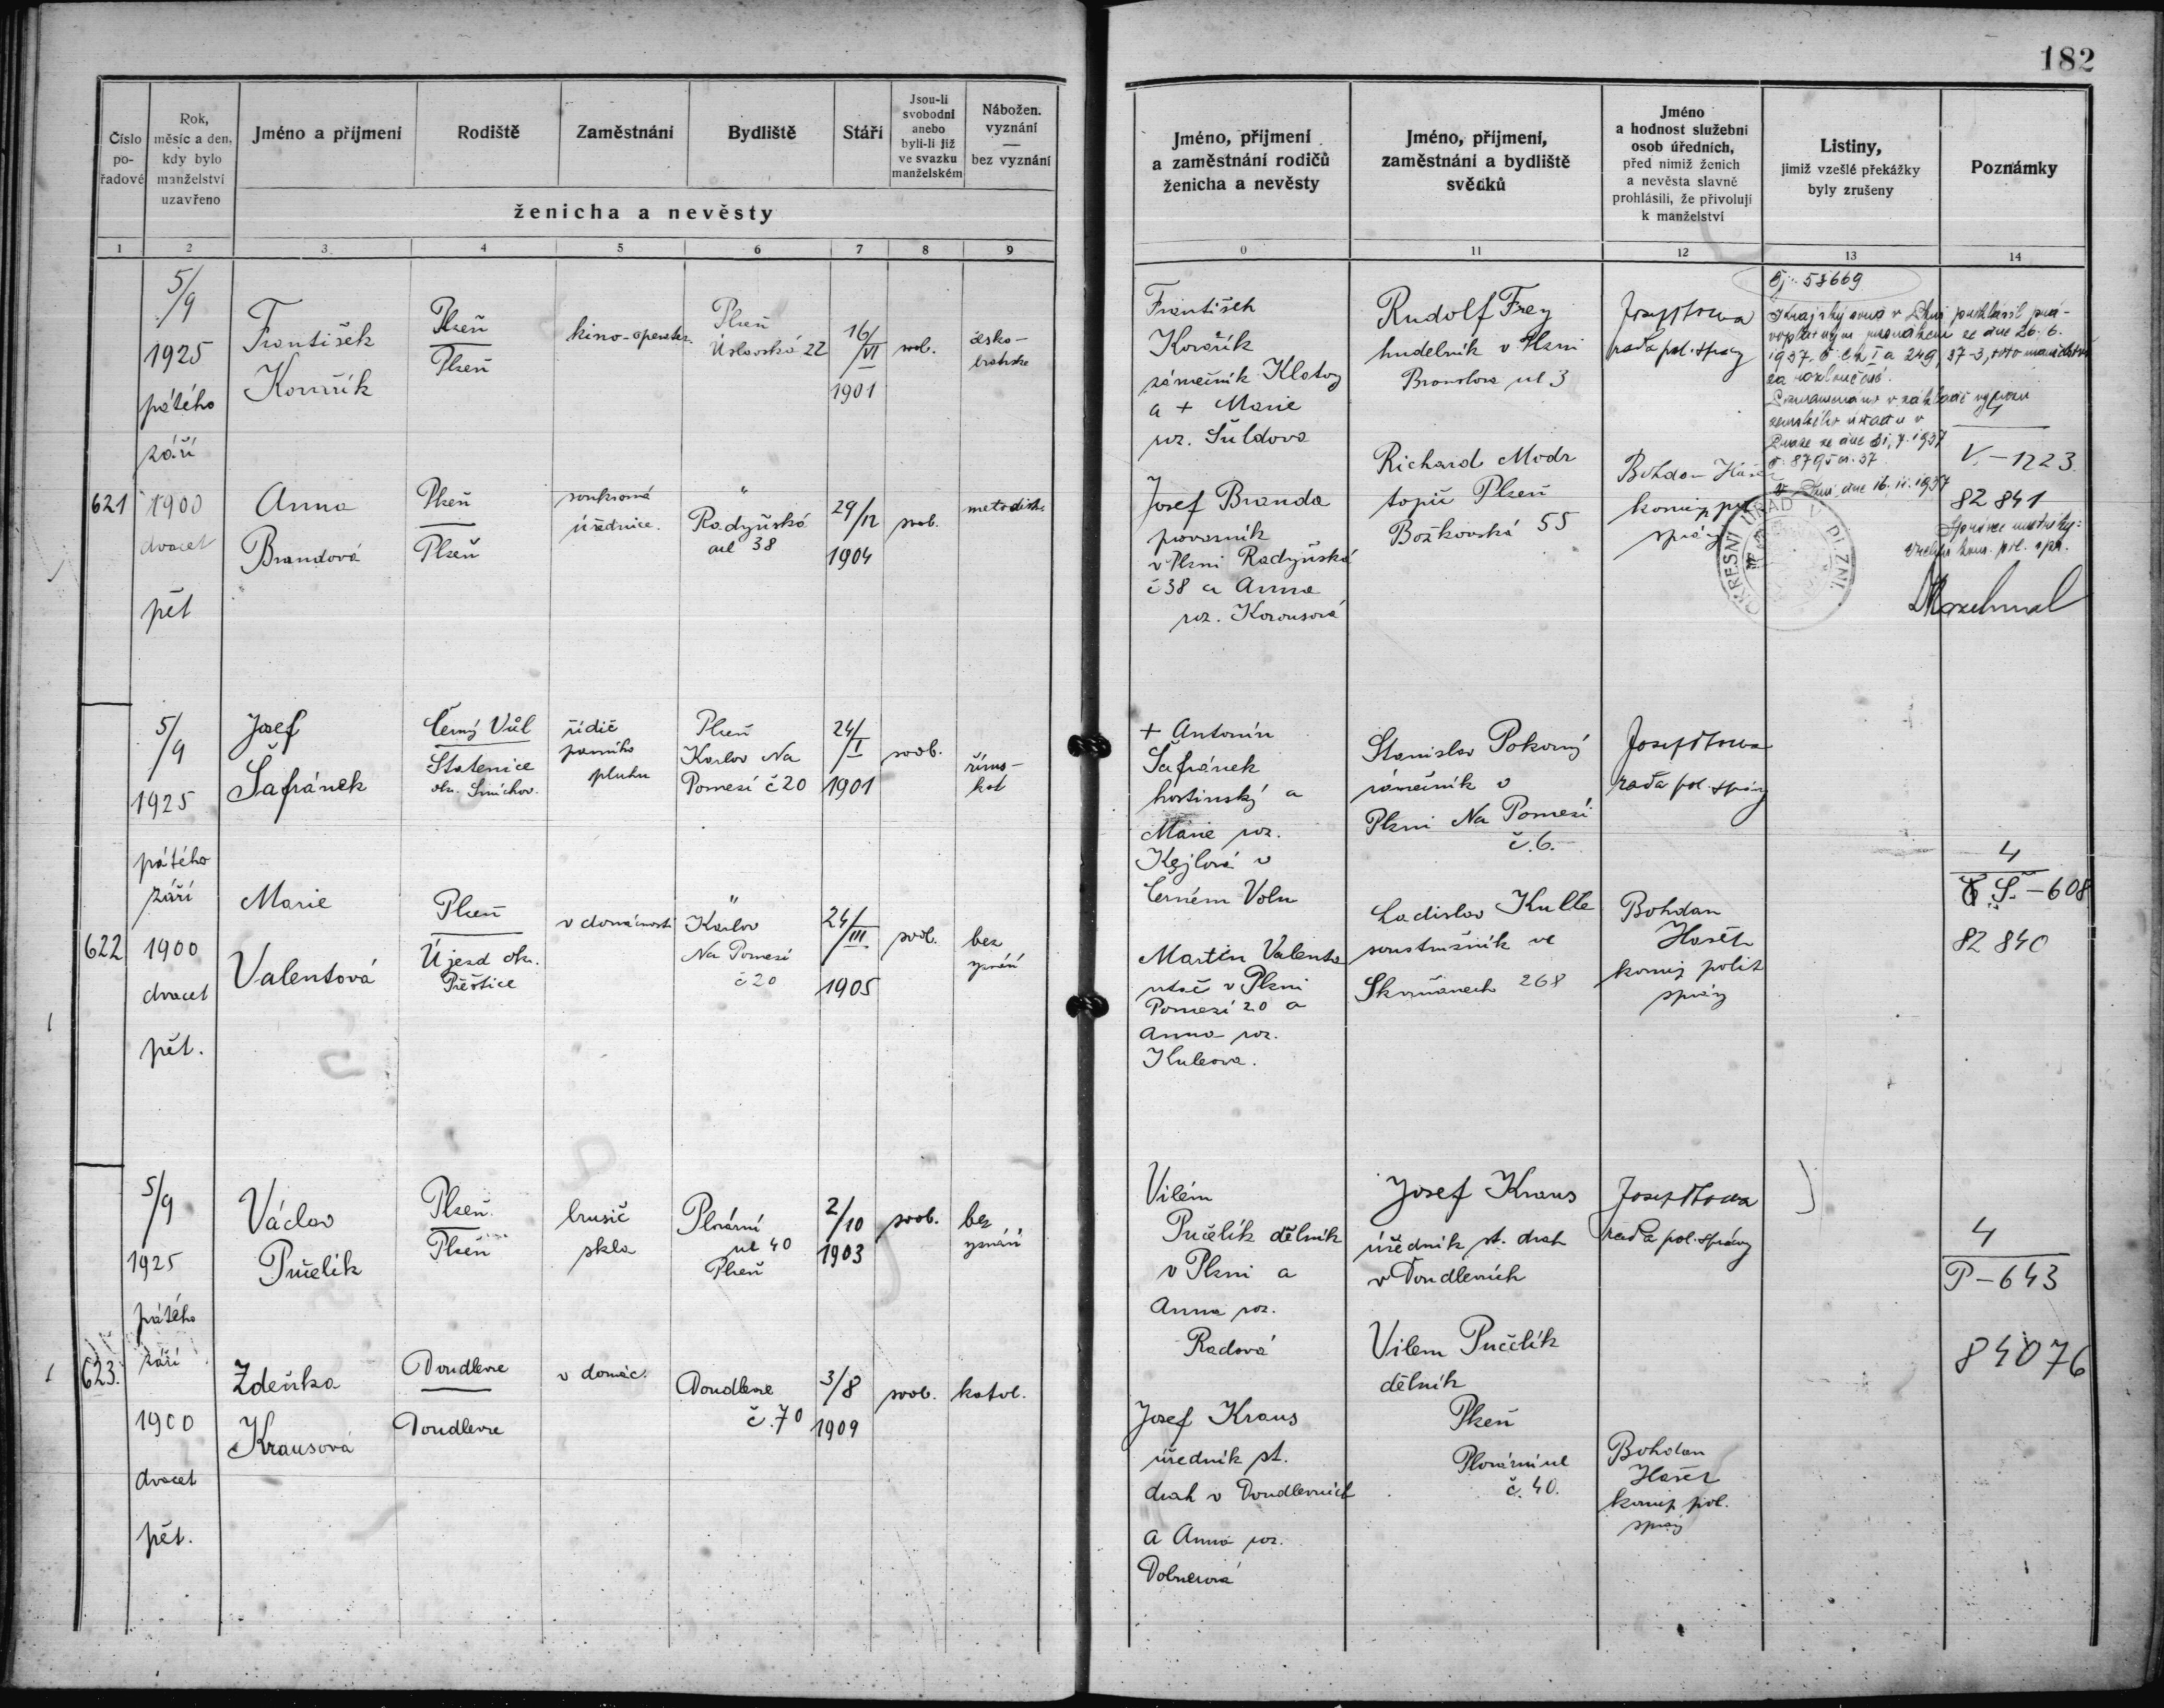 182
Číslo po-řadové
Rok, měsíc a den, kdy bylo manželství uzavřeno
Jméno a příjmení
Rodiště
Zaměstnání
Bydliště
Stáří
Jsou-li svobodni anebo byli-li již ve svazku manželském
Nábožen. vyznání — bez vyznání
ženicha a nevěsty
Jméno, příjmení a zaměstnání rodičů ženicha a nevěsty
Jméno, příjmení, zaměstnání a bydliště svědků
Jméno a hodnost služební osob úředních, před nimiž ženich a nevěsta slavně prohlásili, že přivolují k manželství
Listiny, jimiž vzešlé překážky byly zrušeny
Poznámky
1 2 3 4 5 6 7 8 9 0 11 12 13 14
621
5/9
1925
pátého
září
1900
dvacet
pět
František
Kovařík
Plzeň
Plzeň
kino-operater.
Plzeň
Úslavská 22
16/VI
1901
svob.
česko-
bratrské
Anna
Brandová
Plzeň
Plzeň
soukromá
úřednice.
"
Radyňská
ul 38
29/12
1904
svob.
metodist.
František
Kovařík
zámečník Klatovy
a + Marie
roz. Šuldova
Josef Branda
provazník
v Plzni Radyňská
č 38 a Anna
roz. Korousová
Rudolf Frey
hudebník v Plzni
ul 3
Richard Modr
topič Plzeň
Božkovská 55
Josef
rada pol. správy
Bohdan
komis. pol.
správy
Čj. 58669
Krajský soud v Plzni prohlásil pra-
voplatným usnesením ze dne 26. 6.
1937, č. Ck I a 249/37-3, toto manželství
za rozloučené.
Zaznamenáno v základě výnosu
zemského úřadu v
Praze ze dne 31. 7. 1937
V Plzni dne 16. 11. 1937
OKRESNÍ ÚŘAD V PLZNI
V.-1223
82 841
Správce matriky:
622
5/9
1925
pátého
září
1900
dvacet
pět.
Josef
Šafránek
Černý Vůl
Statenice
okr. Smíchov.
řidič
parního
pluhu
Plzeň
Karlov Na
Pomezí č 20
24/I
1901
svob.
říms-
kat
Marie
Valentová
Plzeň
Újezd okr.
Přeštice
v domácnosti
"
Karlov
Na Pomezí
č 20
24/III
1905
svob.
bez
vyznání
+ Antonín
Šafránek
hostinský a
Marie roz.
Kejlová v
Černém Volu
Martin Valenta
v Plzni
Pomezí 20 a
Anna roz.
Stanislav Pokorný
zámečník v
Plzni Na Pomezí
č. 6.-
Ladislav
soustružník ve
Skvrňanech 268
Josef
rada pol. správy
Bohdan
komis polit
správy
4
Š.-608
82 840
623.
5/9
1925
pátého
září
1900
dvacet
pět.
Václav
Pučelík
Plzeň
Plzeň
brusič
skla
Plovární
ul 40
Plzeň
2/10
1903
svob.
bez
vyznání
Zdeňka
Krausová
Doudlevce
Doudlevce
v domác.
Doudlevce
č. 70
3/8
1909
svob.
katol.
Vilém
Pučelík dělník
v Plzni a
Anna roz.
Radová
Josef Kraus
úředník st.
drah v Doudlevcích
a Anna roz.
Josef Kraus
úředník st. drah
v Doudlevcích
Vilem Pučelík
dělník
Plzeň
Plovární ul
č. 40.
Josef
rada pol. správy
Bohdan
komis. pol.
správy
4
P-643
84076